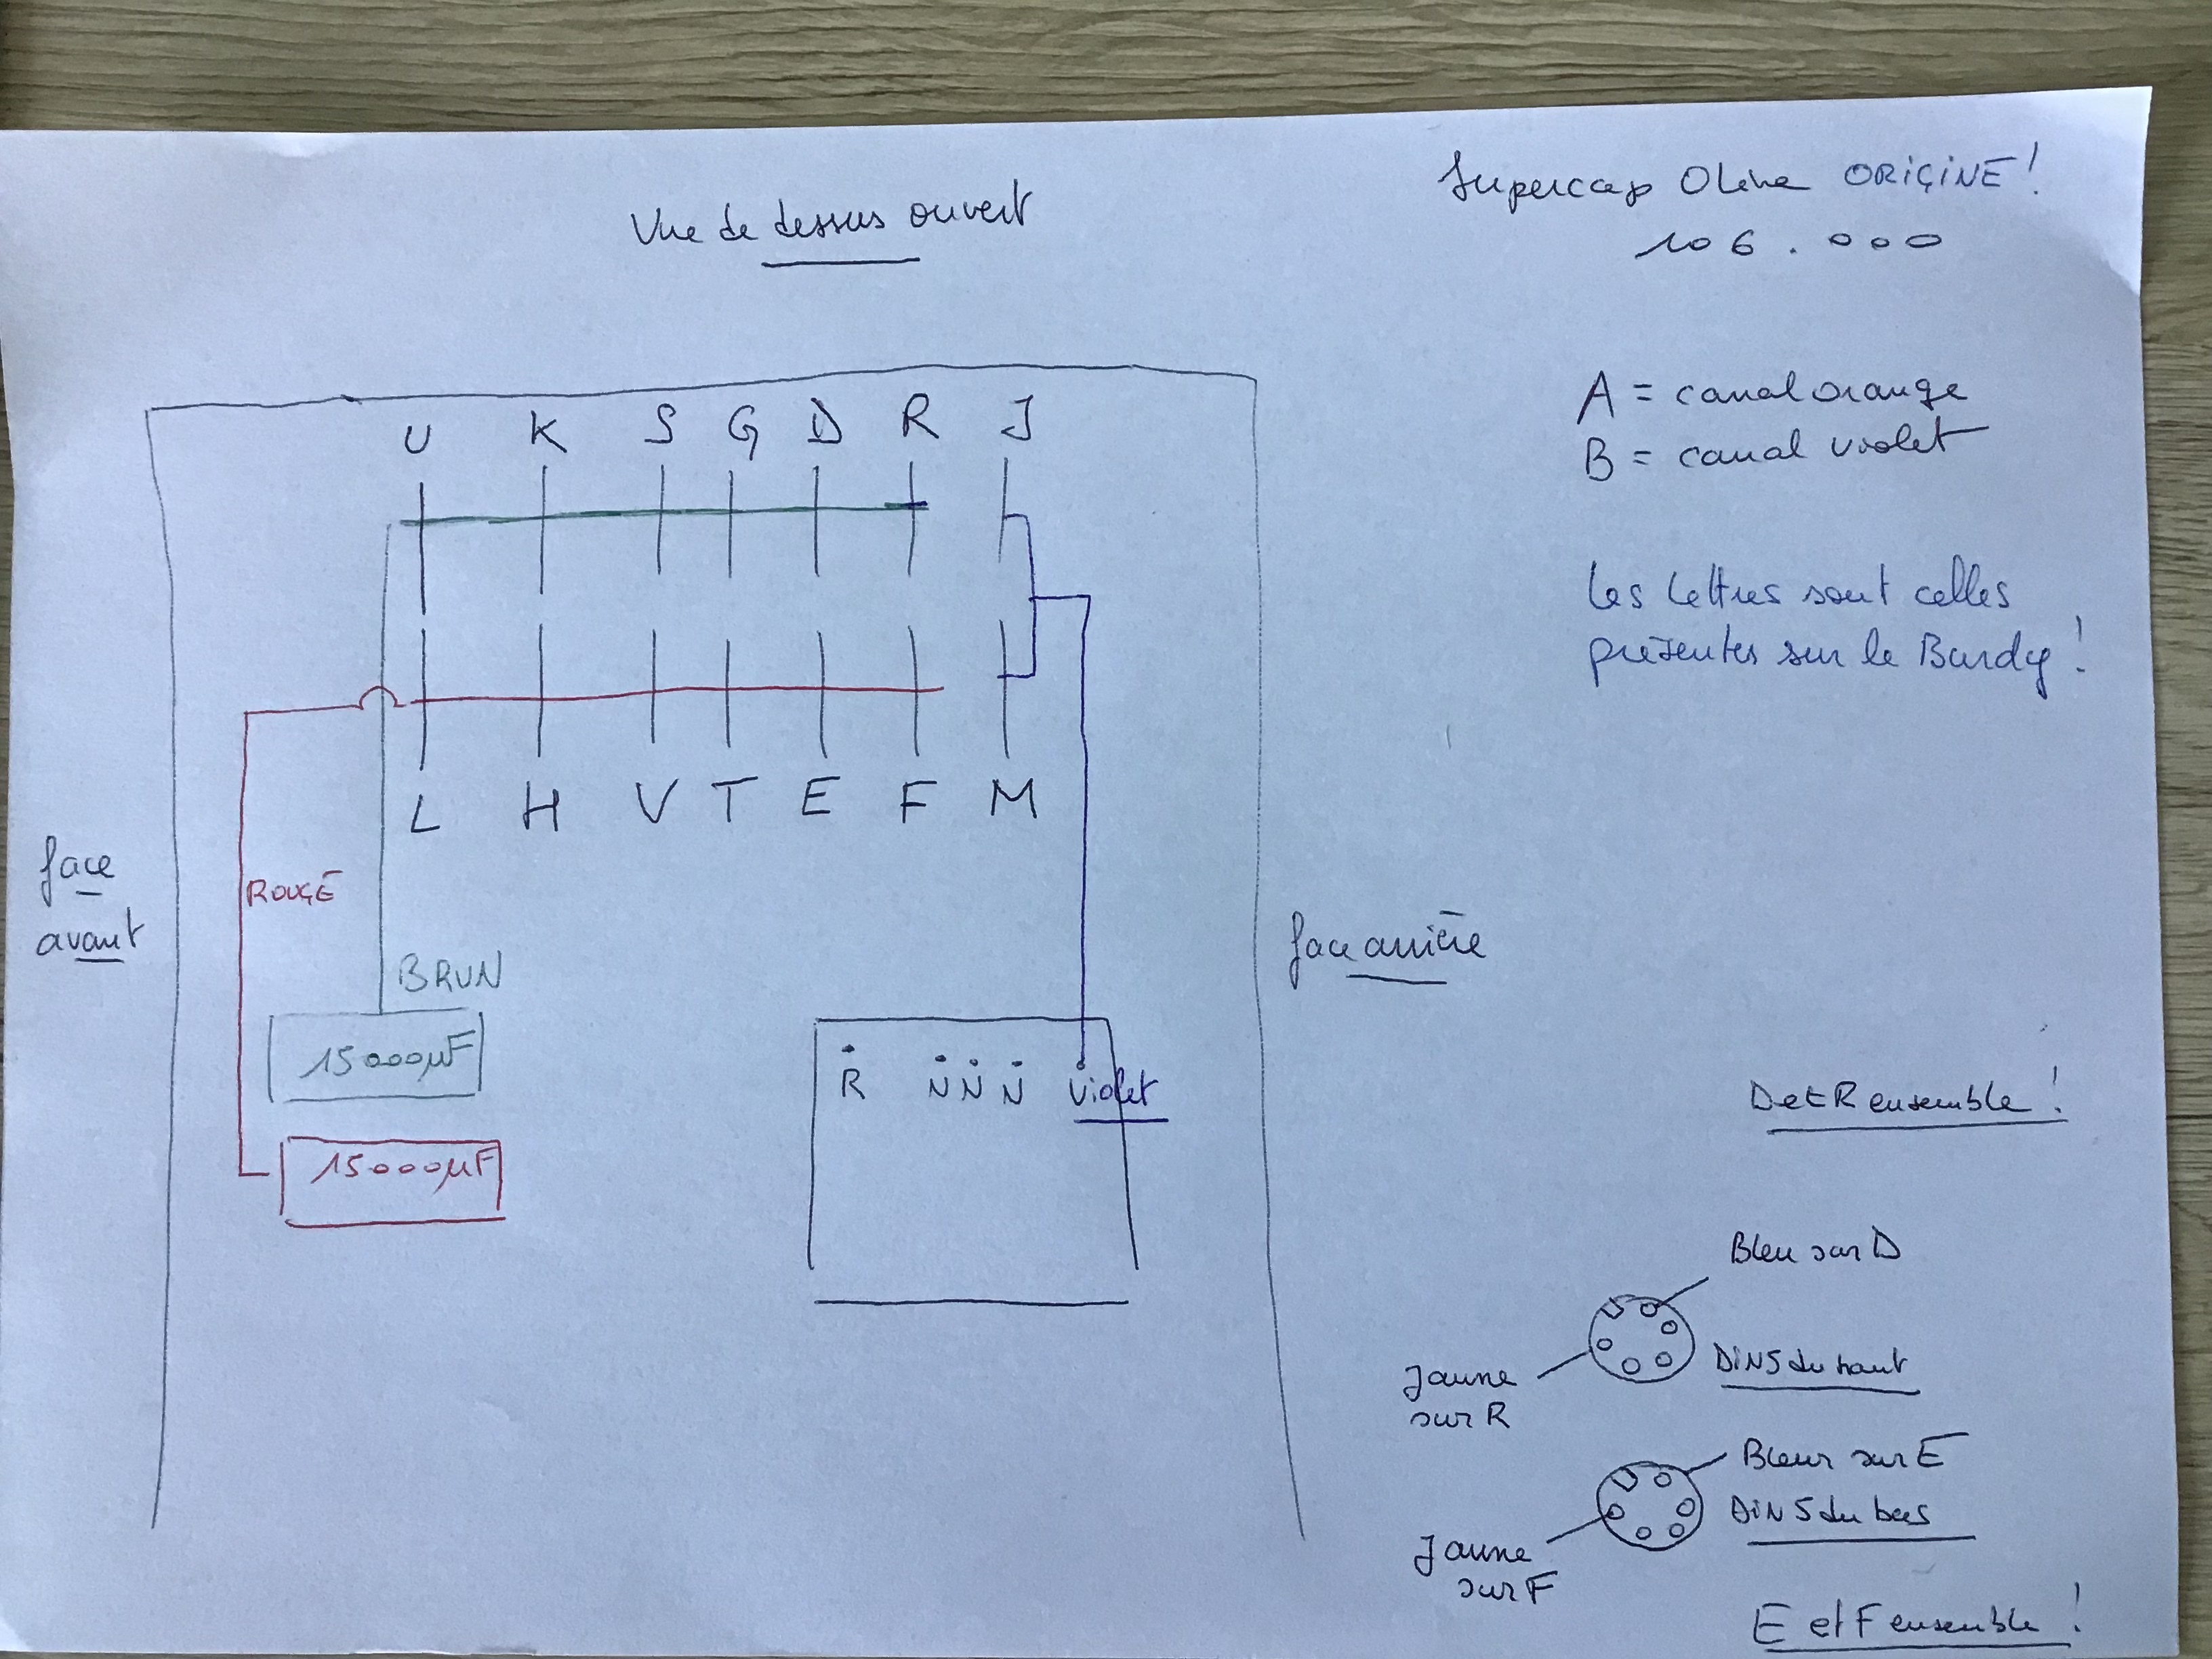 Vue de dessus ouvert
Supercap Olive ORIGINE !
106.000
A = canal orange
B = canal violet
Les lettres sont celles
présentes sur le Burdy !
U K S G D R J
L H V T E F M
face
avant
ROUGE
BRUN
15000µF
15000µF
face arrière
R N N N Violet
D et R ensemble !
Bleu sur D
DIN5 du haut
Jaune
sur R
Bleur sur E
DIN5 du bas
Jaune
sur F
E et F ensemble !